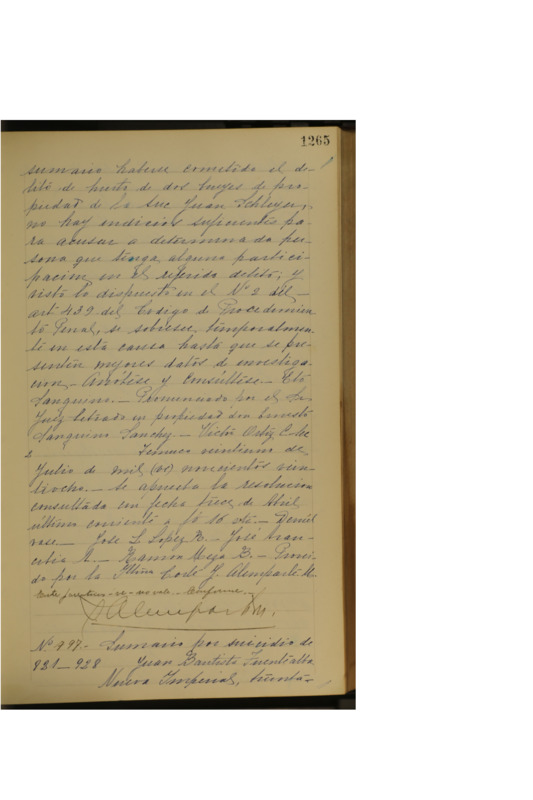 1265
sumario haberse cometido el de-
lito de hurto de dos bueyes de pro-
piedad de la suc Juan Schleyer,
no hay indicios suficientes pa-
ra acusar a determinada per-
sona que tenga alguna partici-
pación en el referido delito; y
visto lo dispuesto en el N° 2 del
art 439 del Código de Procedimien
to Penal, se sobresee temporalmen
te en esta causa hasta que se pre-
senten mejores datos de investiga-
ción. Anótese y consúltese.- Eto
Sanquino.- Pronunciado por el Sr
Juez letrado en propiedad don Ernesto
Sánchez.- Victor Ortiz
Temuco veintiuno de
Julio de mil (ve) novecientos vein-
tiocho.- Se aprueba la resolución
consultada con fecha trece de Abril
último corriente a fs 16 vta.- Devuél
vase.- José L. López R.- José Aran-
cibia A.- Ramon Mesa B.- Provei-
do por la Iltma Corte J. Alemparte M.
Entre paréntesis-ve-no vale. Conforme.-
J Alemparte M.
N° 897.- Sumario por suicidio de
821-928 Juan Bautista Fuentealba
Nueva Imperial, treinta-